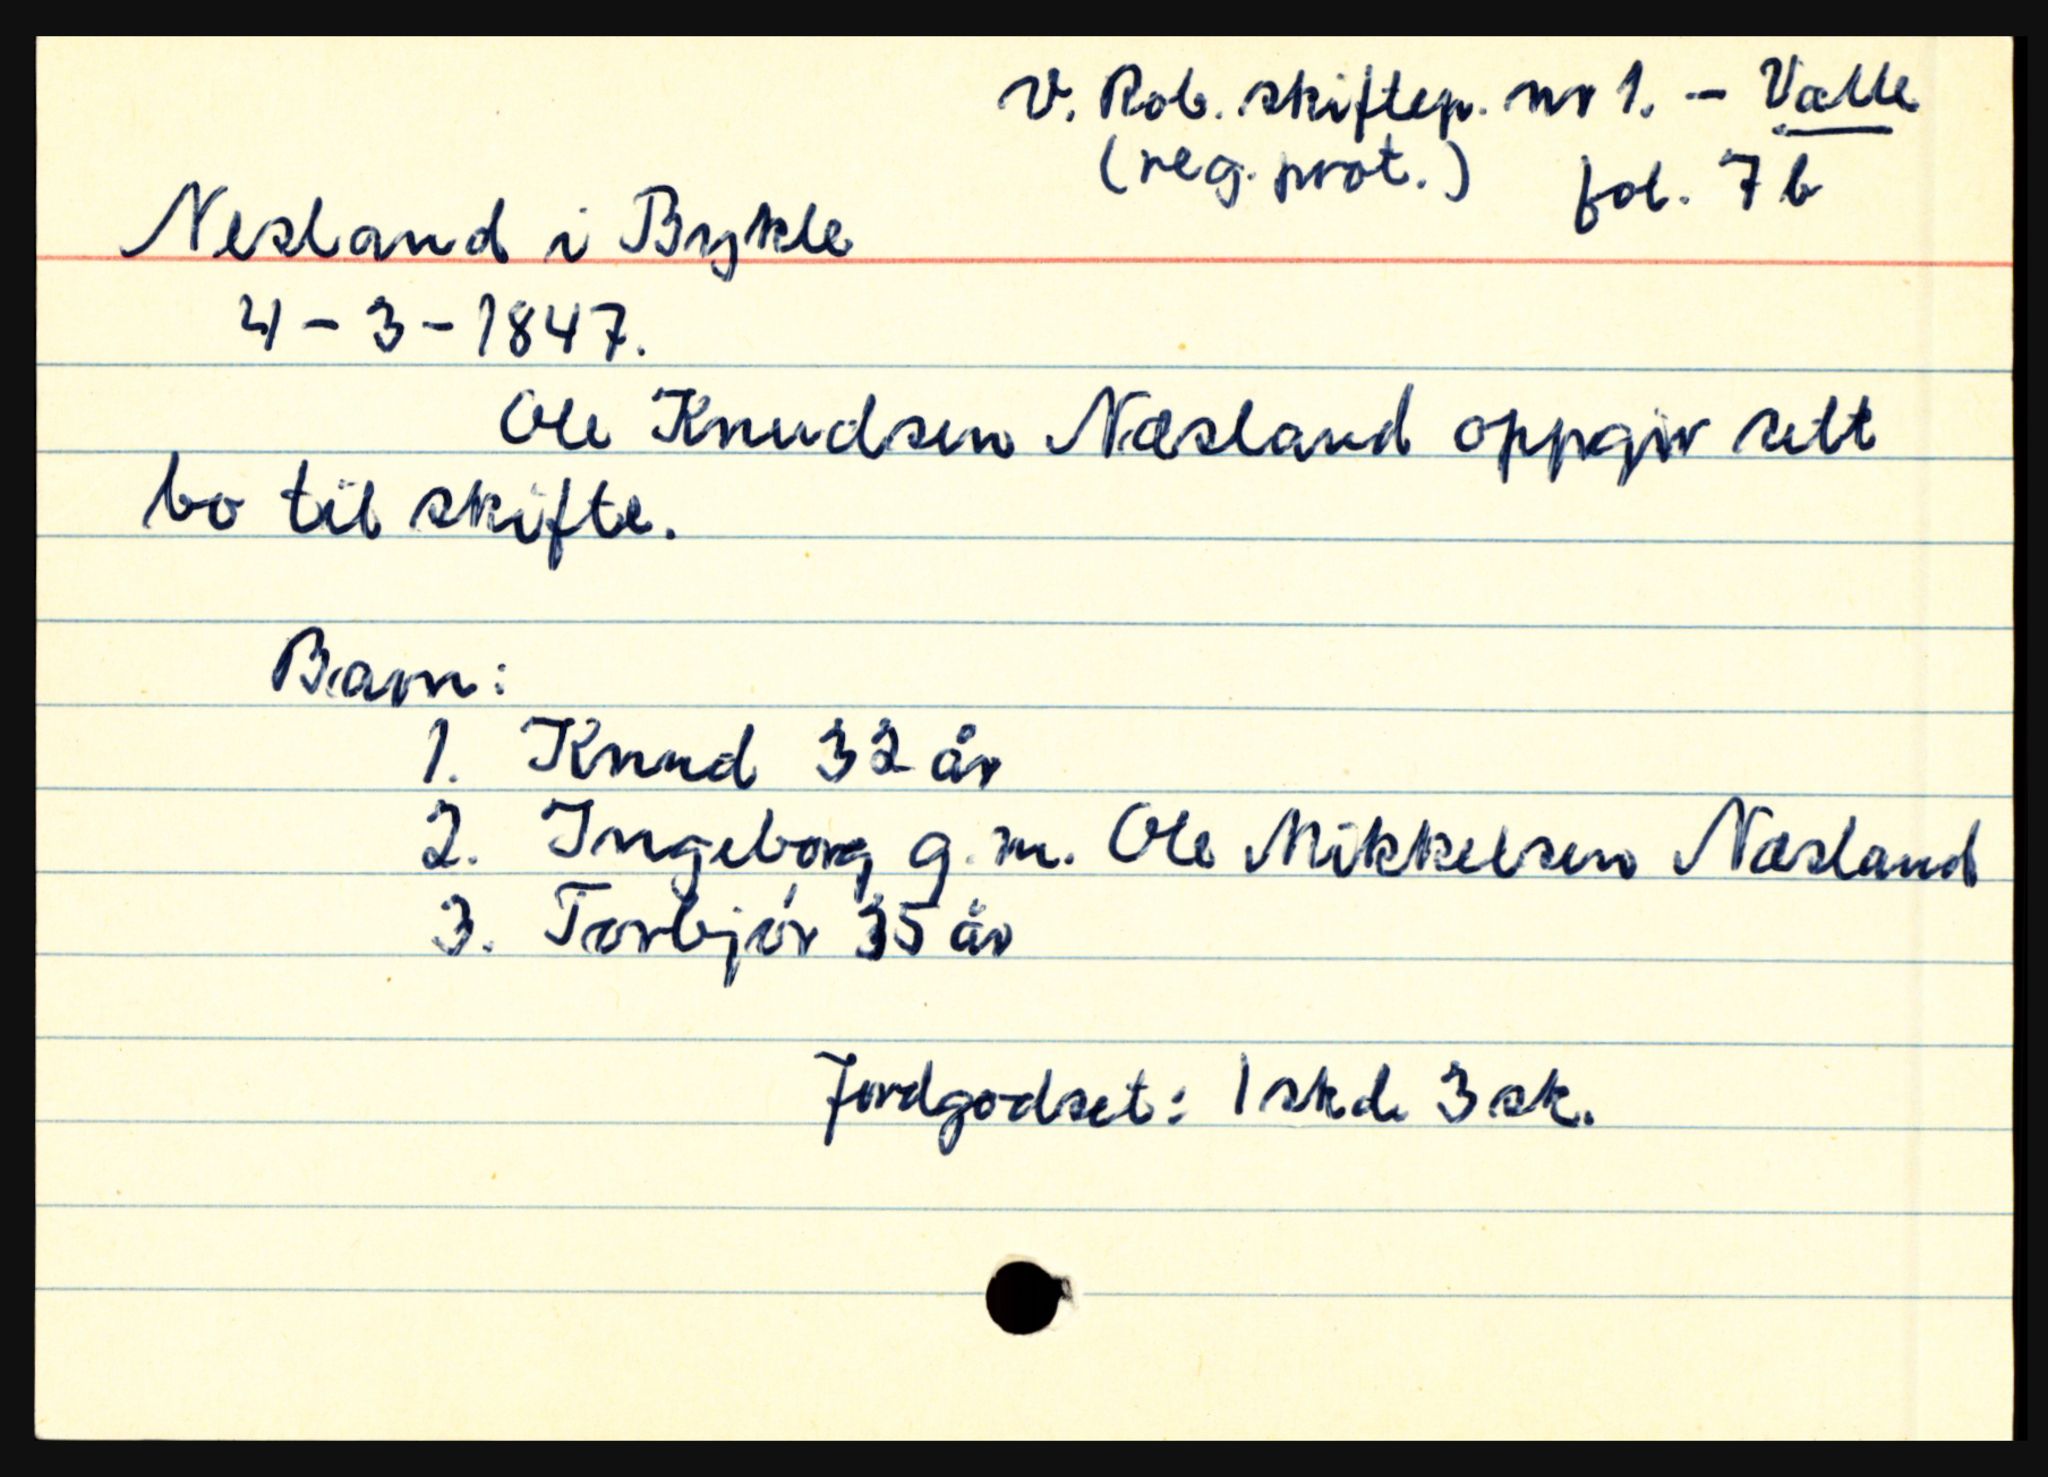 V. Rob. skiftep. nr 1. - Valle
(reg. prot.) fol. 7b
Nesland i Bykle
4-3-1847.
Ole Knudsen Næsland oppgir sitt
bo til skifte.
Barn:
1. Knud 32 år
2. Ingeborg g.m. Ole Mikkelsen Næsland
3. Torbjør 35 år
Jordgodset: 1 skd. 3 sk.